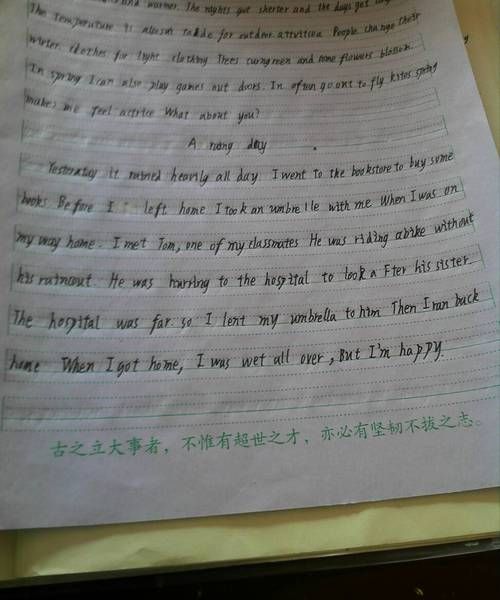 and warmer. The nights get shorter and the days get
The temperature is for outdoor People change their
winter clothes for light clothing Trees turn green and flowers
In spring I can also play games out doors. In often go ont to fly kites spring
makes me feel What about you?
A day
Yesterday it rained heavily all day I went to the bookstore to buy some
books Before I left home I took an umbrella with me When I was on
my way home. I met Tom, one of my classmates He was riding a bike without
his He was to the hospital to look a Fter his sister
The hospital was far. so I lent my umbrella to him Then I ran back
home When I got home, I was wet all over, But I'm happy.
古之立大事者，不惟有超世之才，亦必有坚韧不拔之志。